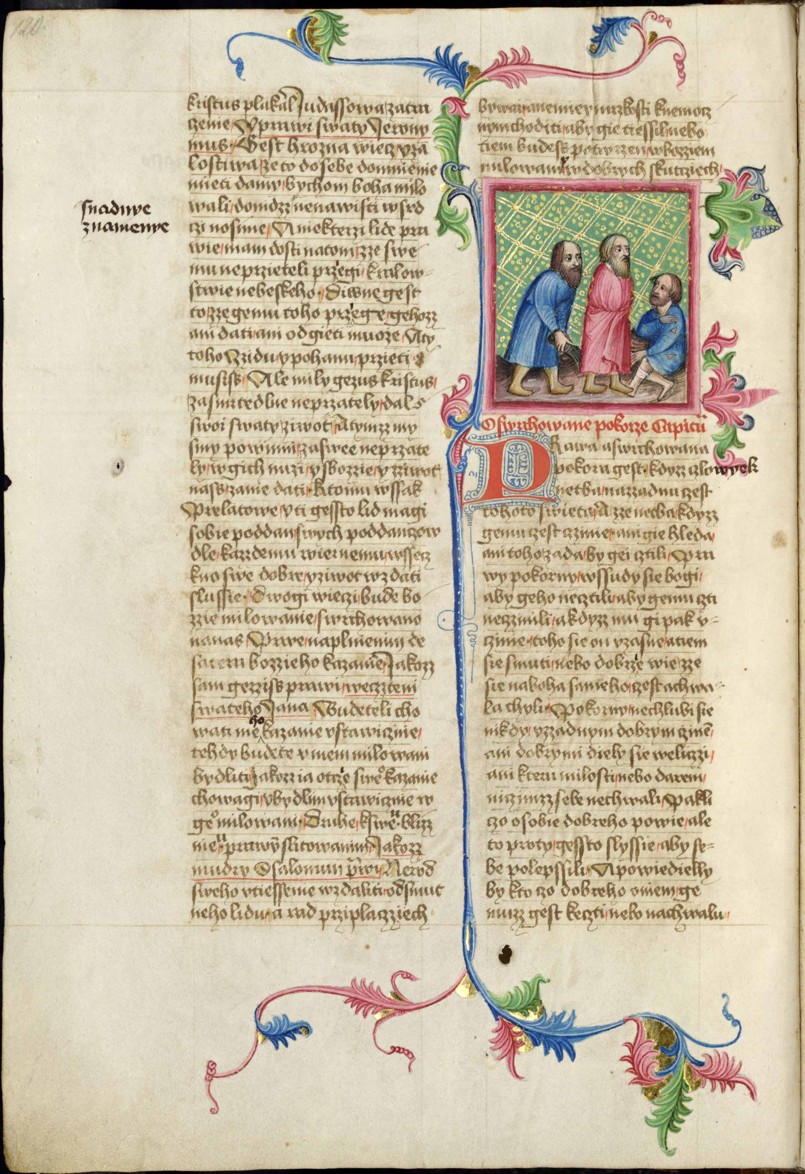 120.
kristus plakal Judassowa zatra
czenie Prawi swaty Jerony
mus Gest hrozna wiecz yza
losti wa zeto do sebe domnienie
mieti damy bychom boha milo
wali domdzz nenawisti w srd
czi nosime A niekterzi lide pra
wie mam dosti natom zze swe
mu neprzieteli przegi kralow
stwie nebeskeho Diwne gest
to zze gemu toho przege gehozz
ani dati ani odgieti muoze Aty
toho Zzidu y pohanu przieti
musiss Ale mily gezus kristus
za smrtedlne neprzately dal
swoi swaty ziwot A tymzz my
smy powinni za swee neprzate
ly w gich nuzi y sbozzie y zziwot
nass zanie dati k tomu wssak
Prelatowe yti gessto lid magi
sobie poddany swych poddanczow
dle kazzdemu wiernemu wssecz
kno swe dobre y ziwot wzdati
slussie Dwogi wieczi bude bo
zzie milowanie swrchowano
nanas Prwe naplnienim de
satera bozzieho kazanie Jakozz
sam gezziss prawi we czteni
swateho Jana Budeteli cho
wati me kazanie vstawicznie
tehdy budete v mem milowani
bydliti jakozz ia otcze sweho kazanie
chowagi y bydlim vstawicznie w
geho milowani Druhe k swe blizz
nie prawym slitowanim Jakozz
mudry Salomun prwi Nerod
sweho vtiessenie wzdaliti od smut
neho lidu a rad przi placzziech
snadnye
znamenye
bywaj a nemey mrzkosti k nemocz
nym choditi aby gie tiessil nebo
tiem budess potwrzen w bozziem
milowani w dobrych skutcziech
O swrchowane pokorze Capitu
Prawa a swrchowana
pokora gest kdyzz czlowyek
netba na zzadnu czest
tohoto swieta A zze netba kdyzz
gemu czest czinie ani gie hleda
ani toho zada by gei cztili Pra
wy pokorny wssudy sie bogi
aby geho necztili aby gemu czti
neczinili a kdyzz mu gi pak v
czinie toho sie on vzasne a tiem
sie smuti nebo dobrze wie zze
sie na boha sameho czest a chwa
la chyli Pokorny nechlubi sie
nikdy vzzadnym dobrym czinem
ani dobrymi diely sie weliczzi
ani kteru milosti nebo darem
niczimzz sebe nechwali Pakli
czo o sobie dobreho powie ale
to proty gessto slyssie aby se
be polepssili A powiedielly
by kto czo dobreho o niem ge
muzz gest ke czti nebo na chwalu